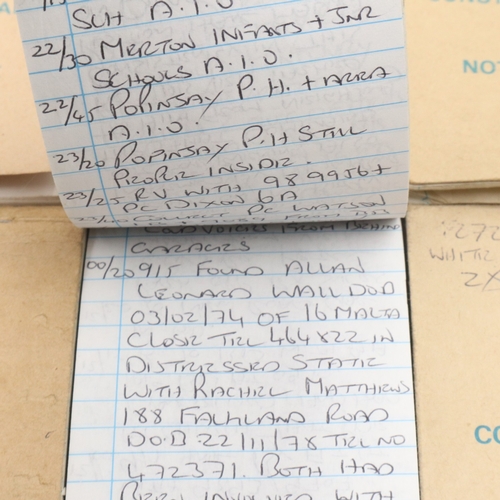 SCH A.I.O
22/30 MERTON INFANTS + JNR
SCHOOLS A.I.O.
22/45 POPINJAY P.H. + AREA
A.I.O.
23/20 POPINJAY P.H STILL
PEOPLE INSIDE.
23/25 RV WITH 989956+
PC DIXON 6A
PC WATSON
LOUD VOICES FROM BEHIND
GARAGES
00/20 915 FOUND ALLAN
LEONARD WALL DOB
03/02/74 OF 16 MALTA
CLOSE TEL 464822 IN
DISTRESSED STATE
WITH RACHEL MATTHEWS
188 FALKLAND ROAD
D.O.B. 22/11/78 TEL NO
472371. BOTH HAD
BEEN INVOLVED WITH
NOT
WHITE
2X
CO